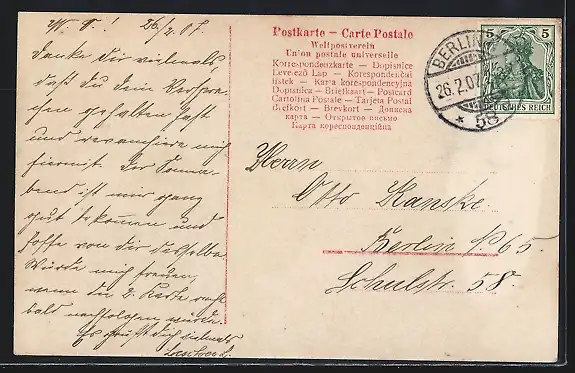 W. O.! 26/2.07.
Danke Dir vielmals
daß du dein Verspre-
chen gehalten hast
und revanchiere mich
hiermit. Der Sonna-
bend ist mir ganz
gut bekommen und
hoffe von dir dasselbe.
Würde mich freuen,
wenn die 2. Karte recht
bald nachfolgen würde.
Es grüßt dich vielmals
Postkarte – Carte Postale
Weltpostverein
Union postale universelle
Korrespondenzkarte – Dopisnice
Levelező Lap – Korespondenčai
listek – Karta korespondencyjna
Dopisnica – Briefkaart – Postcard
Cartolina Postale – Tarjeta Postal
Brefkort – Brevkort – Дописна
карта – Открытое письмо
Карта кореспонденцийна
BERLIN
26.2.07
* 58
5 5
DEUTSCHES REICH
Herrn
Otto Kanske.
Berlin N. 65.
Schulstr. 58.